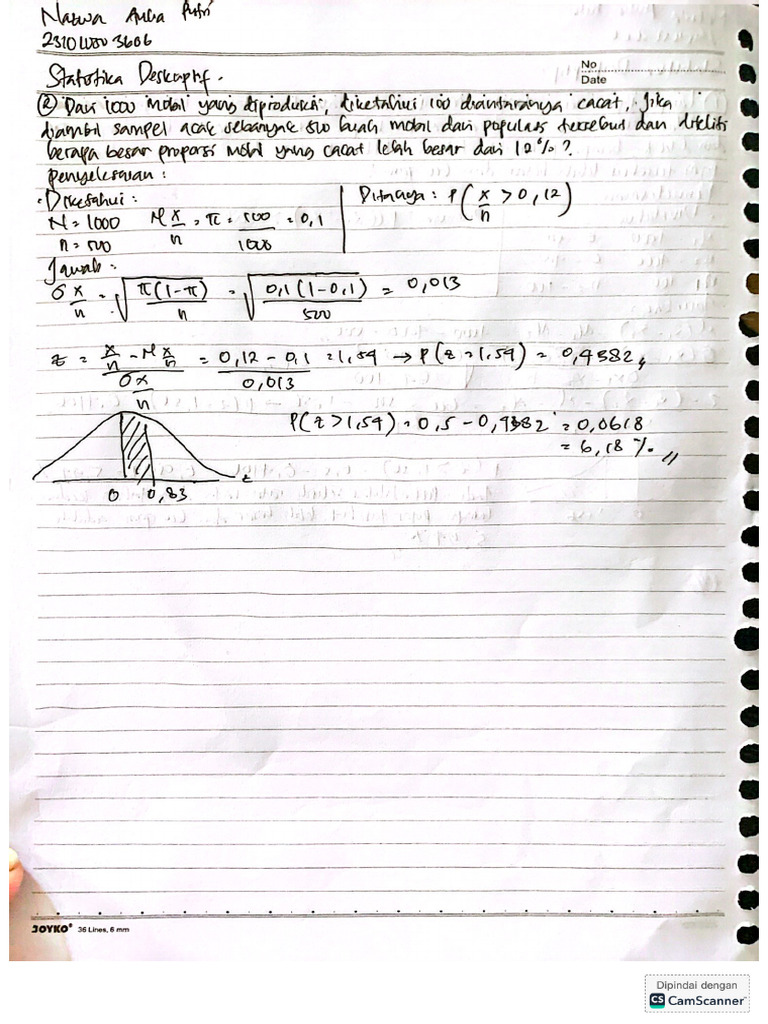 Putri
2310
No
Date
Statistika Deskriptif.
② Dari 1000 mobil yang diproduksi, diketahui 100 diantaranya cacat, jika
diambil sampel acak sebanyak 500 buah mobil dari populasi tersebut dan diteliti
berapa besar proporsi mobil yang cacat lebih besar dari 12%?
Penyelesaian :
Diketahui :
Ditanya : P(x/n > 0,12)
N = 1000 M x/n = π = 100/1000 = 0,1
n = 500
Jawab :
σ x/n = √π(1-π)/n = √0,1(1-0,1)/500 = 0,013
z = x/n - M x/n / σ x/n = 0,12 - 0,1 / 0,013 = 1,54 → P(z = 1,54) = 0,4382
P(z > 1,54) = 0,5 - 0,4382 = 0,0618
= 6,18 % //
0 0,83 z
JOYKO® 36 Lines, 6 mm
Dipindai dengan
CS CamScanner